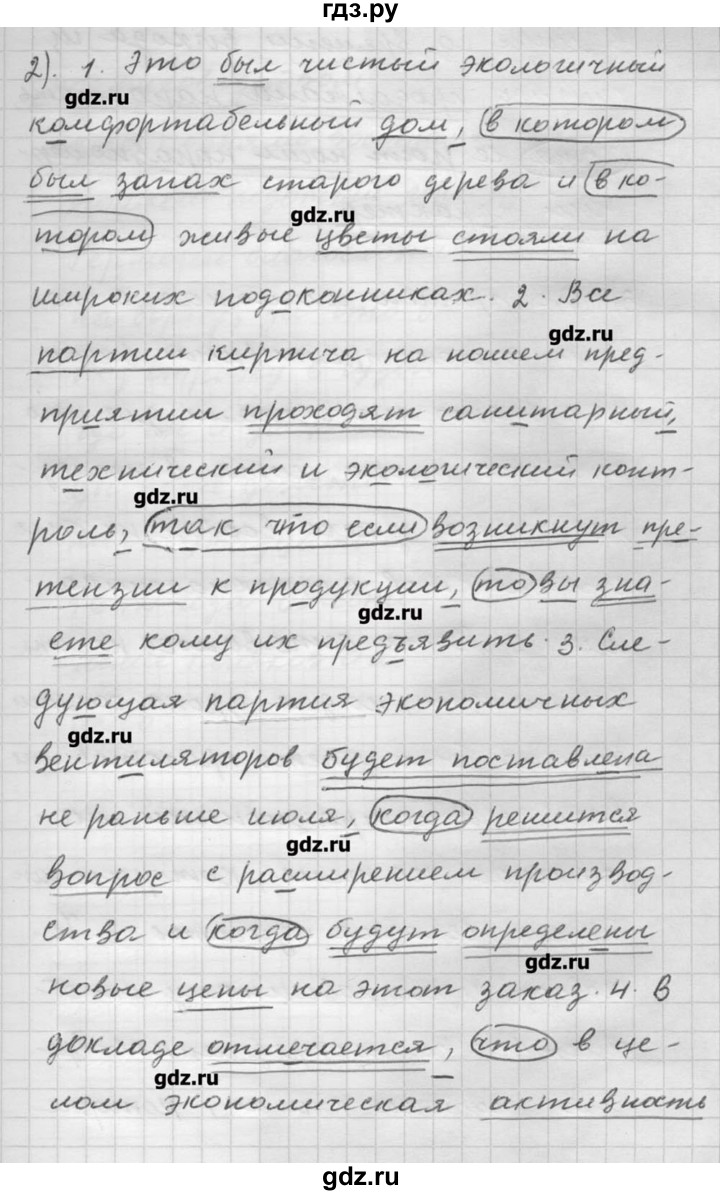 гдз.ру
2). 1. Это был чистый экологичный
gdz.ru
комфортабельный дом, в котором
был запах старого дерева и в ко-
gdz.ru
тором живые цветы стояли на
широких подоконниках. 2. Все
gdz.ru
партии кирпича на нашем пред-
приятии проходят санитарный,
технический и экологический конт-
gdz.ru
роль, так что если возникнут пре-
тензии к продукции, то вы зна-
gdz.ru
ете кому их предъявить. 3. Сле-
дующая партия экономичных
gdz.ru
вентиляторов будет поставлена
не раньше июля, когда решится
gdz.ru
вопрос с расширением производ-
ства и когда будут определены
gdz.ru
новые цены на этот заказ. 4. В
докладе отмечается, что в це-
gdz.ru
лом экономическая активность
gdz.ru